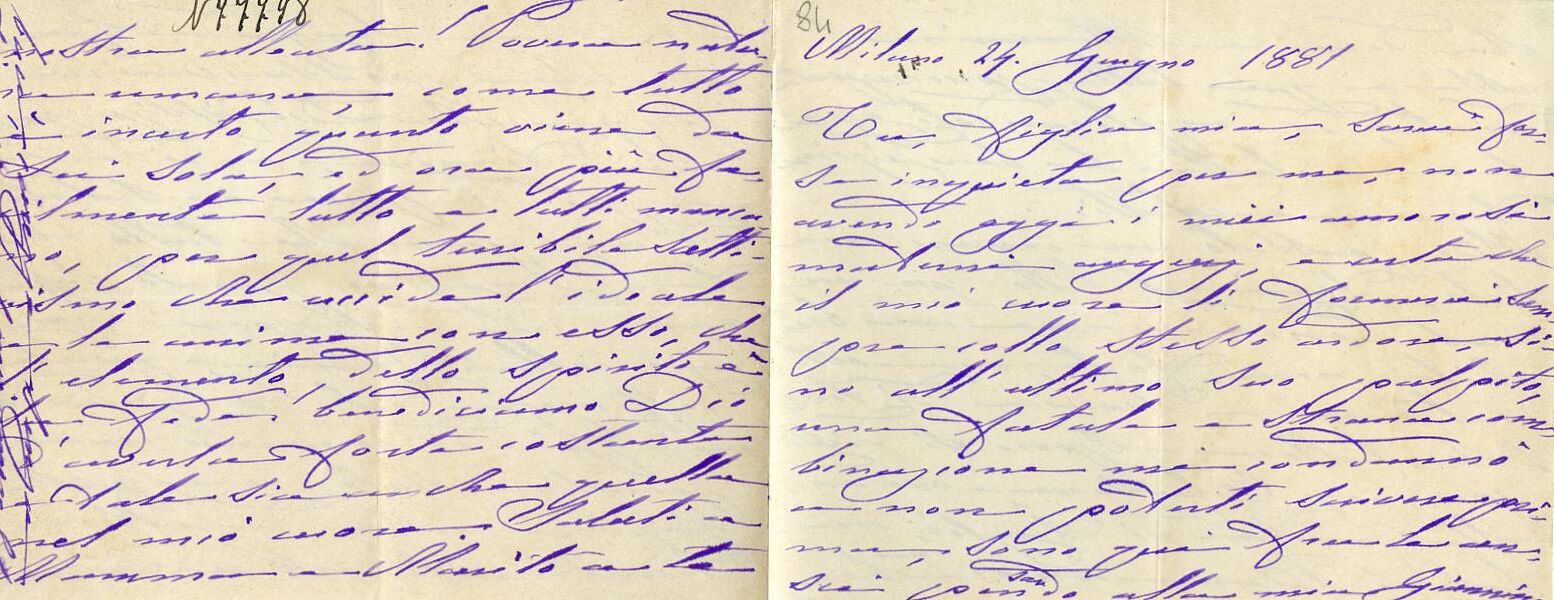 N 77778
nostra alleata! Povera natu-
ra umana, come tutto
è incerto quanto viene da
Lei sola, ed ora più fa-
cilmente tutto e tutti
so, per quel terribile Scetti-
cismo che uccide l'ideale
e le anime con esso, che
elemento dello Spirito è
la Fede, benediciamo Dio
d'averla forte costante
e tale sia anche quella
nel mio cuore. Saluti a
Mamma e Marito a te
84
Milano 24. Giugno 1881
Tu, figlia mia, sarai for-
se inquieta per me, non
avendo oggi i miei amorosi
materni augurj, e certa che
il mio cuore li formerà sem-
pre collo stesso ardore, si-
no all'ultimo suo palpito,
una fatale e strana com-
binazione mi condannò
a non poterti scrivere pri-
ma, sono qui fra le an-
sie pensando alla mia Giannin